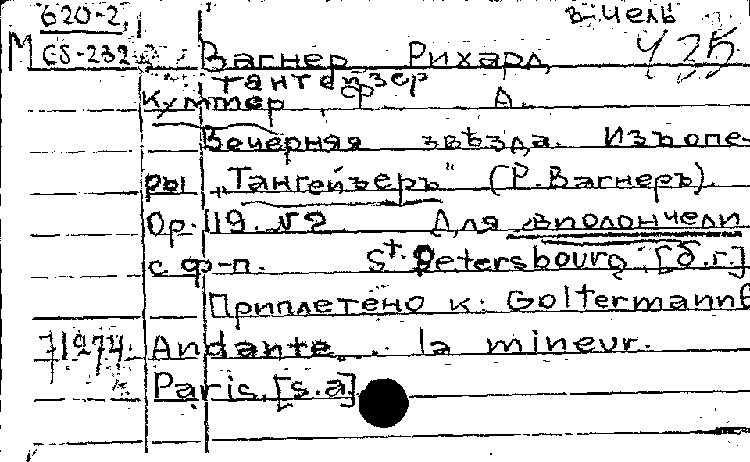 620-2, в-чель
М CS-232 435
Вагнер Рихард
Тангейзер
Куммер, Ф. А.
Вечерняя звѣзда. Изъ опе-
ры „Тангейзеръ“ (Р. Вагнеръ).
Ор. 119. N2 Для виолончели
с ф-п. St. Petersbourg, [б.г.]
Приплетено к: Goltermann G
71274 Andante... la mineur.
Paris, [s.a]